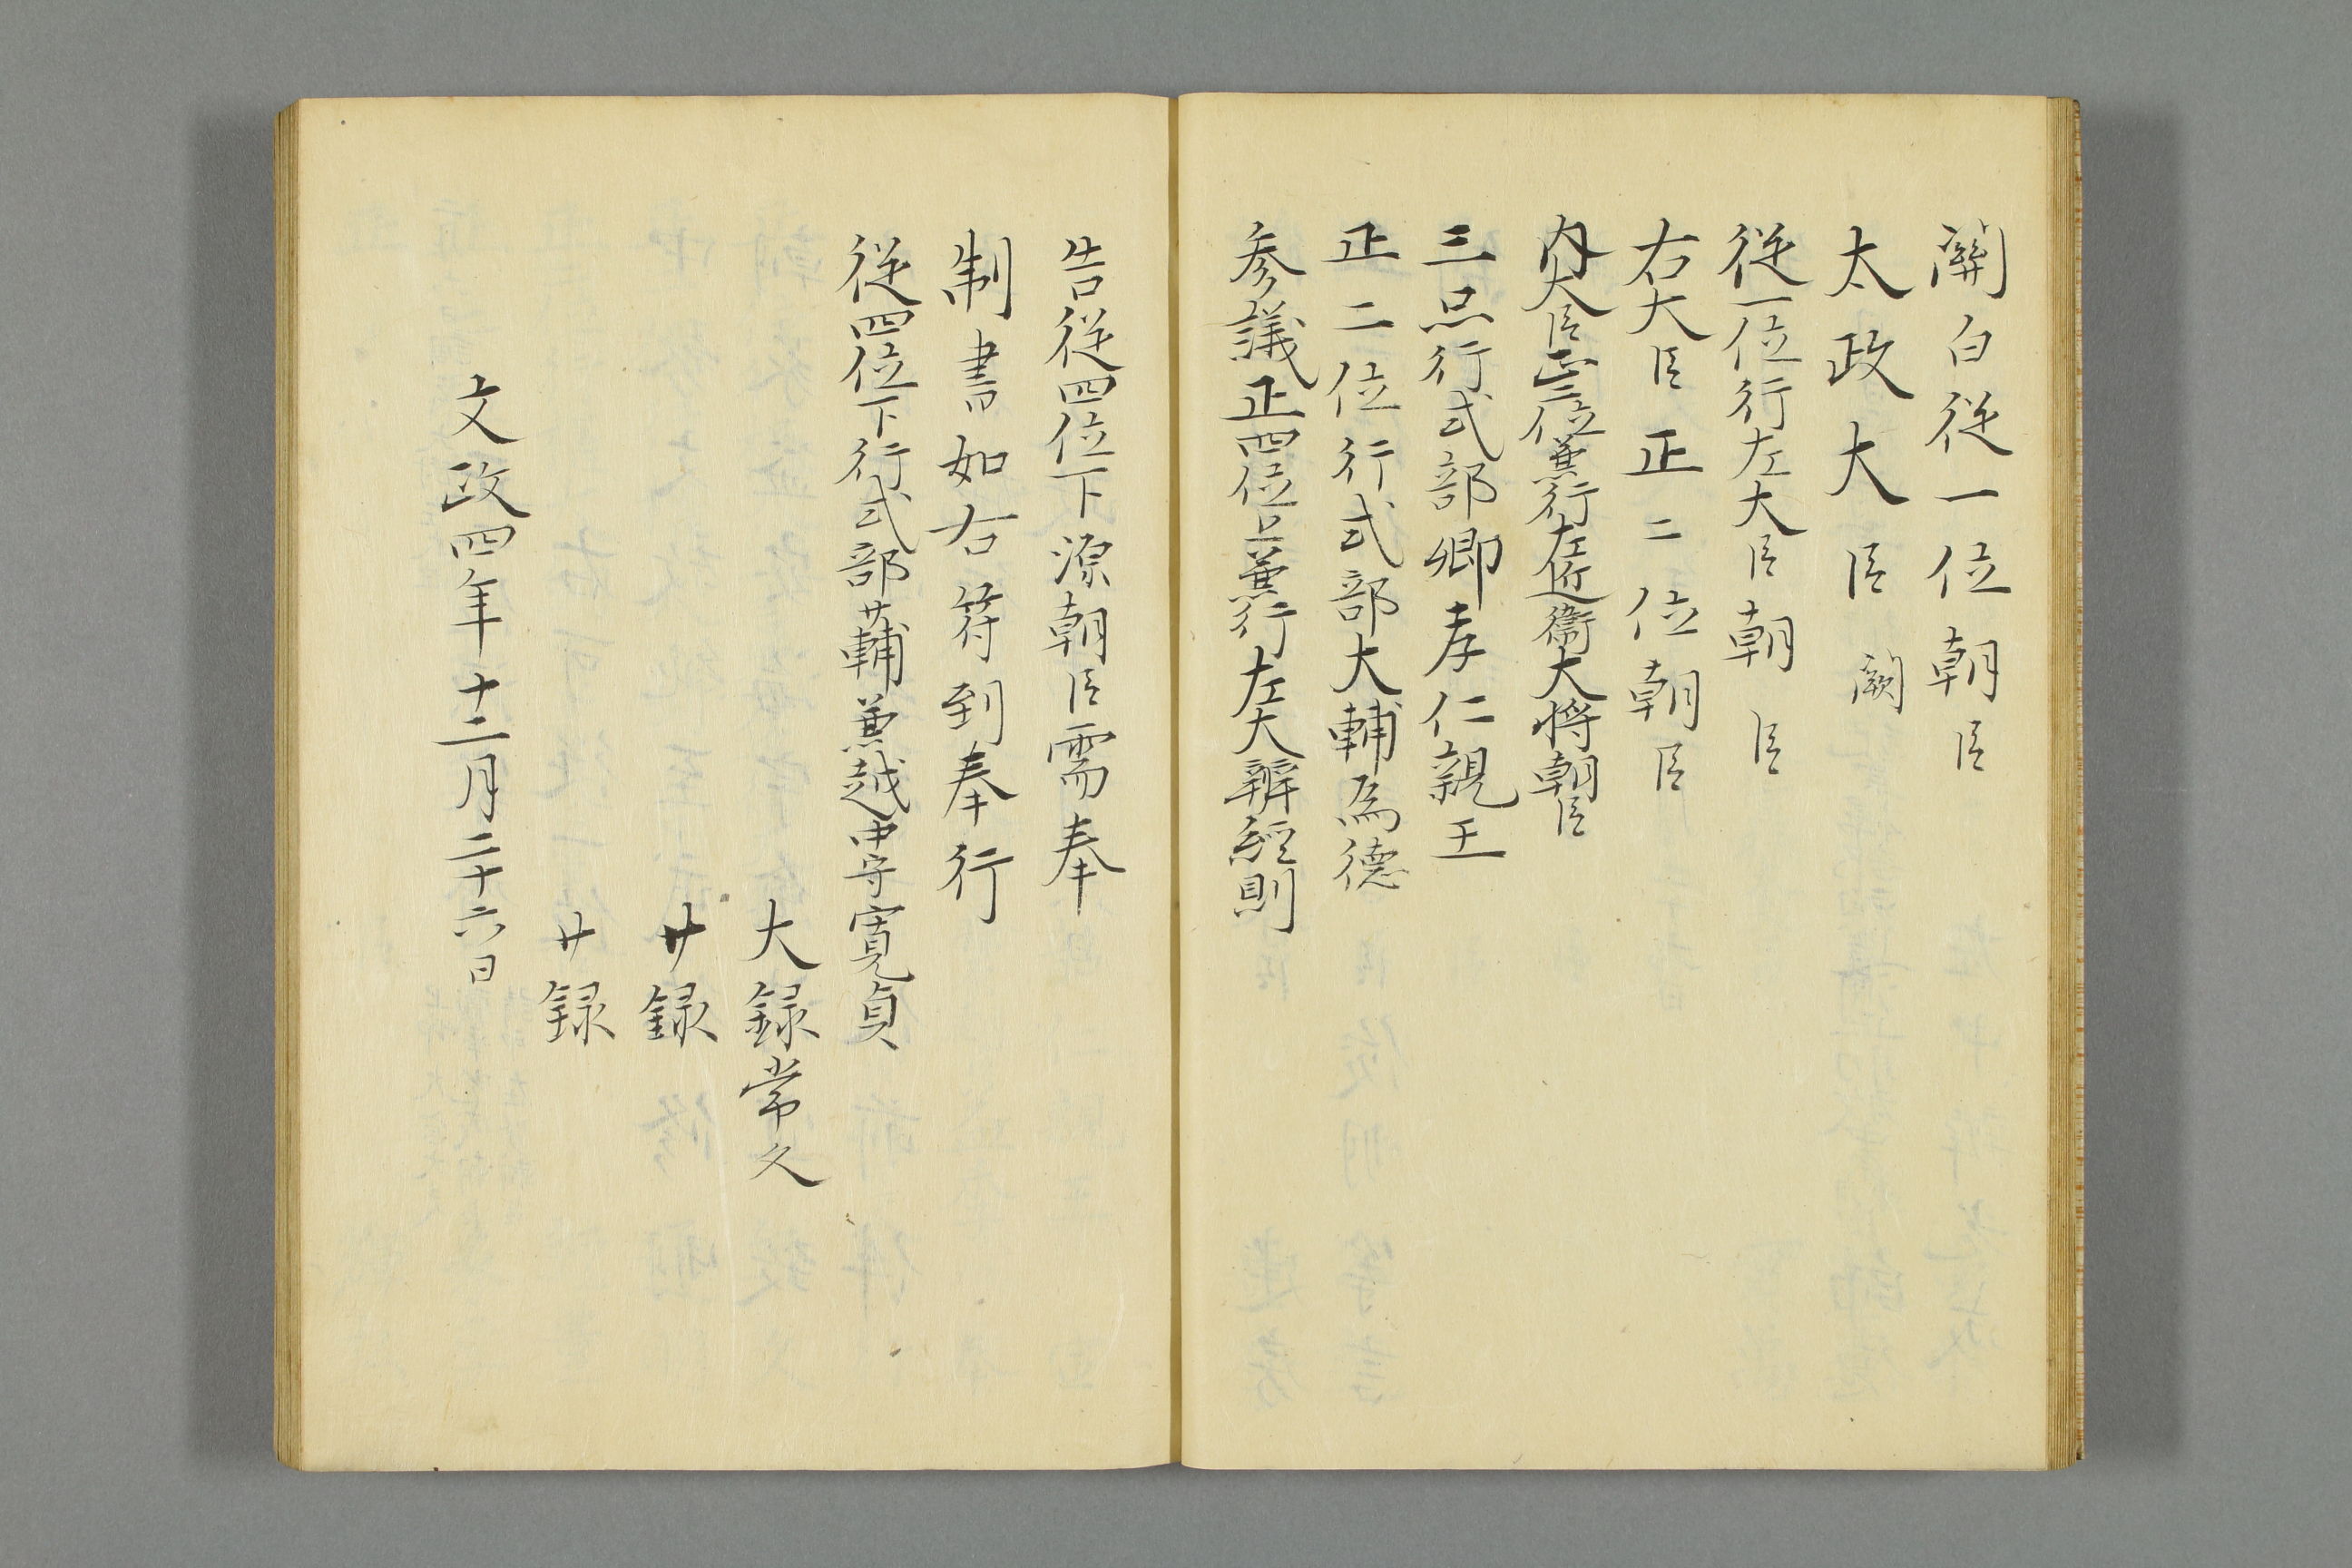 關白従一位朝臣
太政大臣 闕
従一位行左大臣朝臣
右大臣正二位朝臣
内大臣正二位兼行左近衛大将朝臣
三品行式部卿孝仁親王
正二位行式部大輔為徳
参議正四位上兼行左大辨經則
告従四位下源朝臣需奉
制書如右符到奉行
従四位下行式部少輔兼越中守寛貞
大録常久
少録
少録
文政四年十二月二十六日